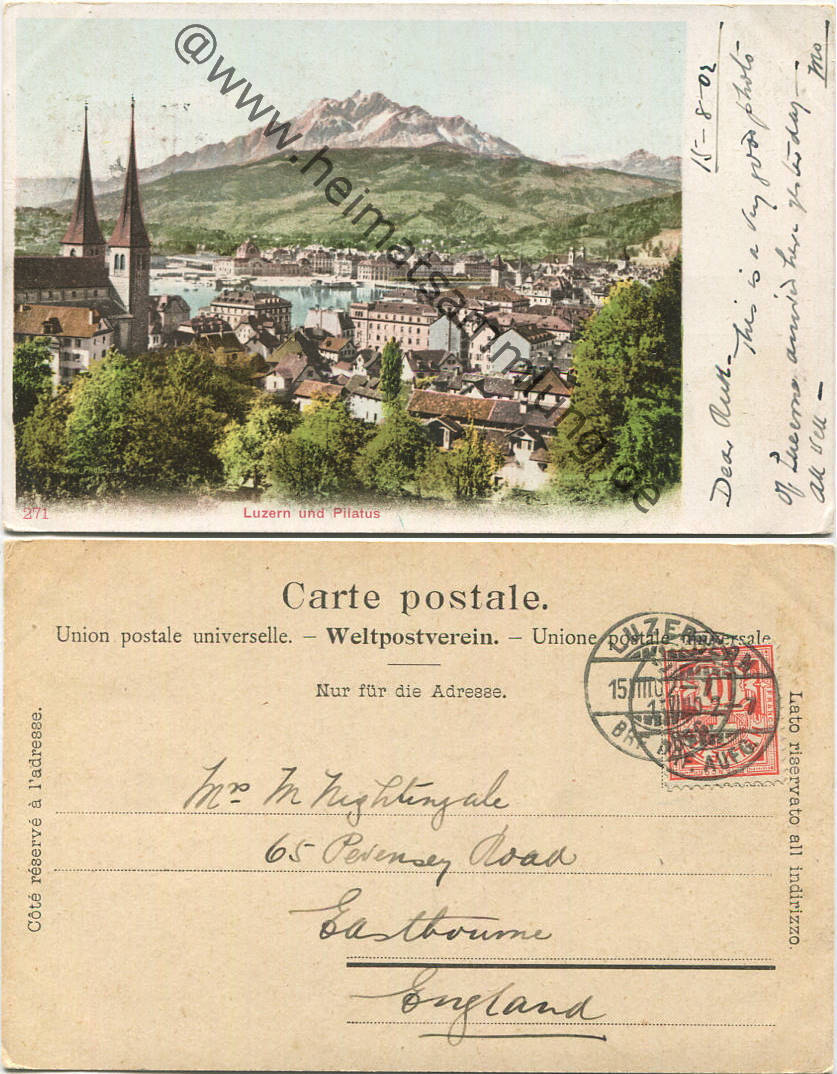 @www.heimatsammlung.de
15-8-02
Dear Ruth -
This is a very good photo
of Lucerne arrived here yesterday -
all well -
271
Luzern und Pilatus
Carte postale.
Union postale universelle. – Weltpostverein. – Unione postale universale
Nur für die Adresse.
Côté réservé à l'adresse.
Lato riservato all indirizzo.
LUZERN
15.VIII.02
BRF. AUFG.
Mrs M Nightingale
65 Pevensey Road
Eastbourne
England